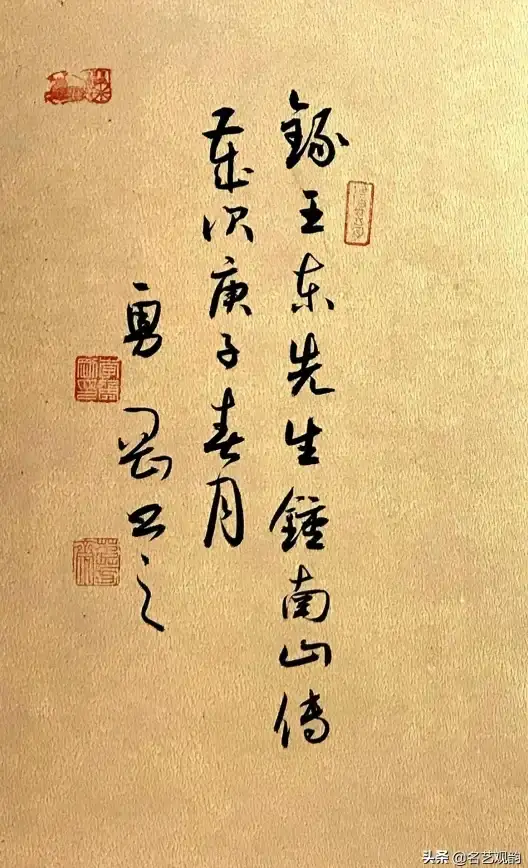 錄王东先生鍾南山传
歲次庚子春月
勇罡书之
头条 @名艺观韵